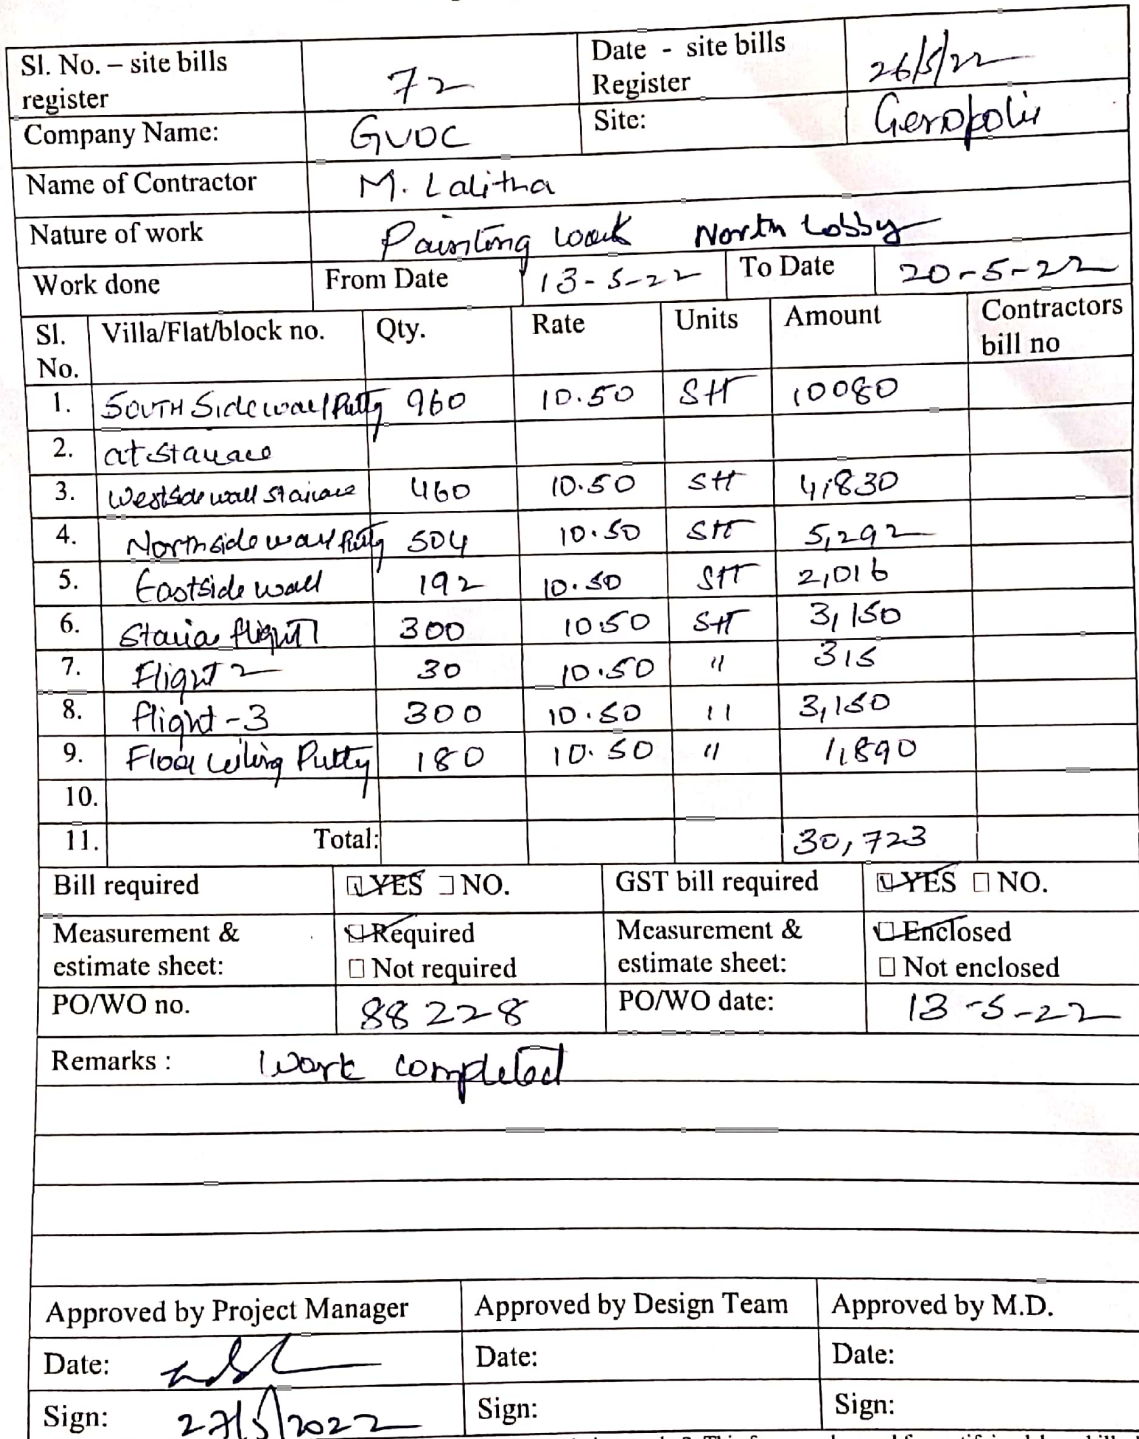 Sl. No. – site bills register 72 Date - site bills Register 26/5/22
Company Name: GVDC Site: Genopolis
Name of Contractor M. Lalitha
Nature of work Painting work North Lobby
Work done From Date 13-5-22 To Date 20-5-22
Sl. No. Villa/Flat/block no. Qty. Rate Units Amount Contractors bill no
1. South Side wall Putty 960 10.50 Sft 10080
2. at staircase
3. West side wall staircase 460 10.50 Sft 4,830
4. North side wall Putty 504 10.50 Sft 5,292
5. Eastside wall 192 10.50 Sft 2,016
6. Stair flight 1 300 10.50 Sft 3,150
7. Flight 2 30 10.50 " 315
8. flight - 3 300 10.50 " 3,150
9. Floor Ceiling Putty 180 10.50 " 1,890
10.
11. Total: 30,723
Bill required ☑ YES ☐ NO. GST bill required ☑ YES ☐ NO.
Measurement & estimate sheet: ☑ Required ☐ Not required Measurement & estimate sheet: ☑ Enclosed ☐ Not enclosed
PO/WO no. 88228 PO/WO date: 13-5-22
Remarks : Work completed
Approved by Project Manager Approved by Design Team Approved by M.D.
Date: Date: Date:
Sign: 27/5/2022 Sign: Sign: